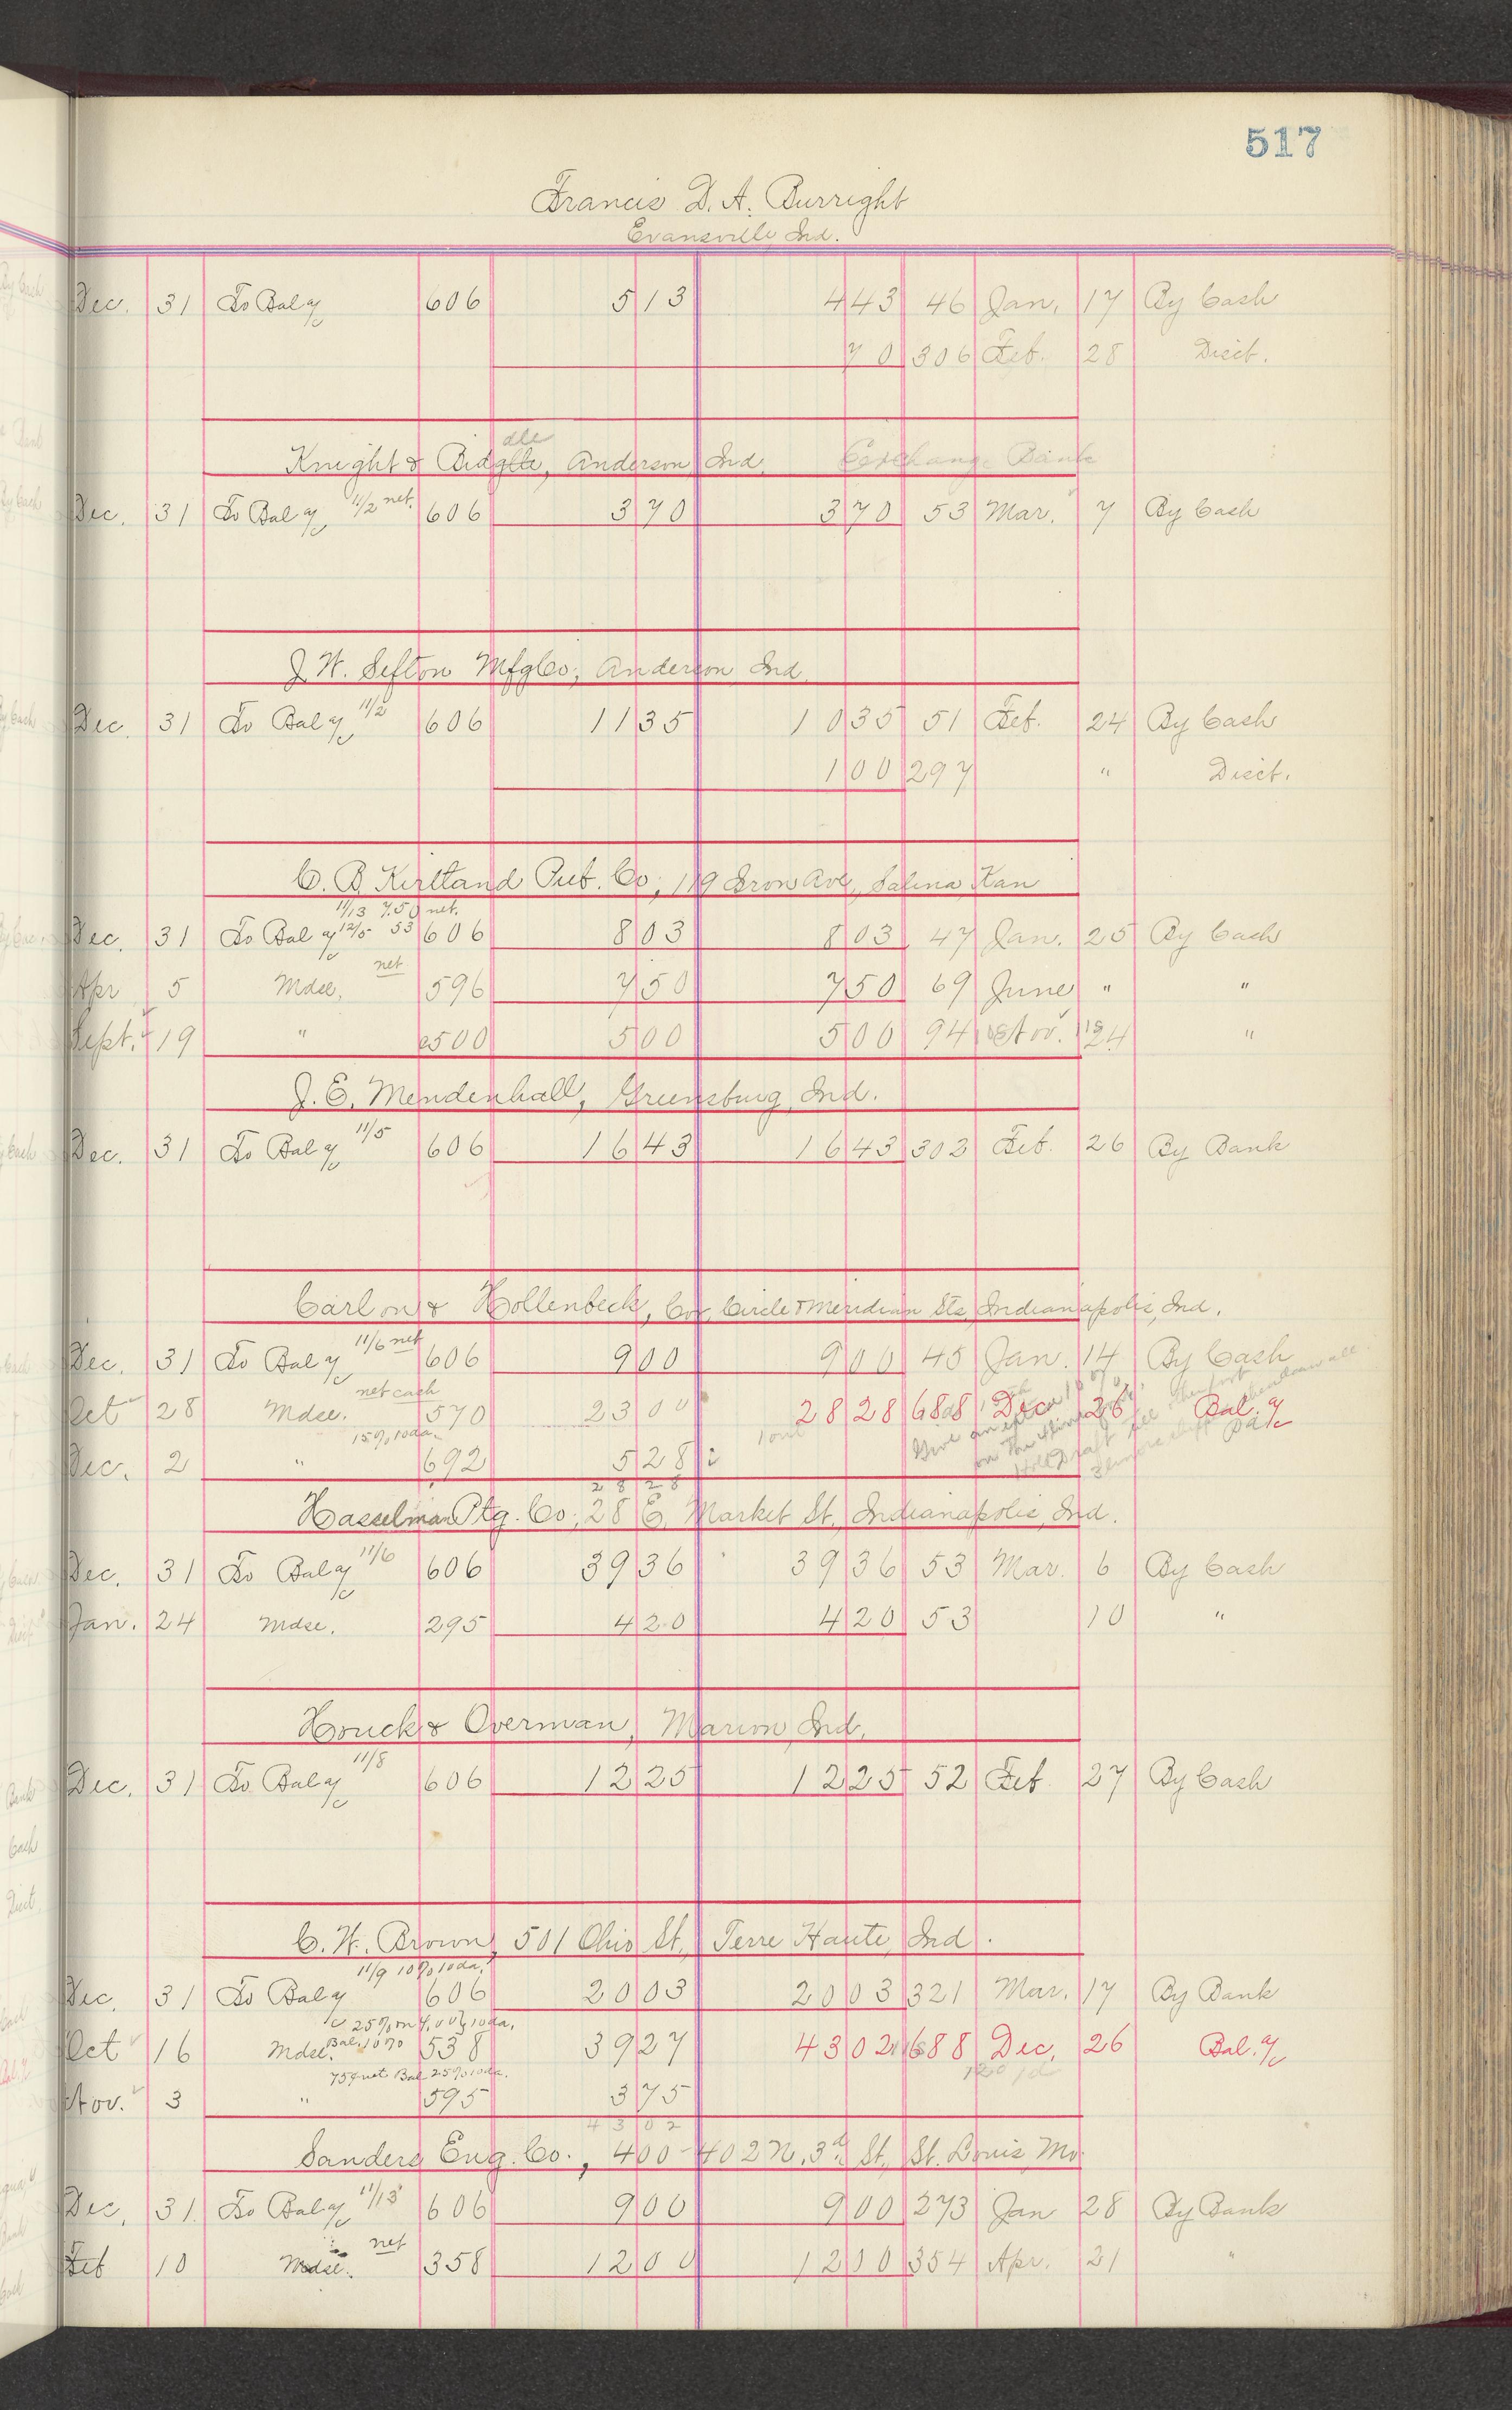 517
Francis D. A. Burright
Evansville Ind.
Dec. 31 To Bal a/c 606 5 13 4 43 46 Jan. 17 By Cash
70 306 Feb. 28 Disct.
dle
Knight & Anderson, Ind. Exchange Bank
Dec. 31 To Bal a/c 11/2 net. 606 3 70 3 70 53 Mar. 7 By Cash
J. W. Sefton Mfg Co, Anderson Ind.
Dec. 31 To Bal a/c 11/2 606 11 35 10 35 51 Feb. 24 By Cash
1 00 297 " Disct.
C. B. Kirtland Pub. Co, 119 Iron Ave, Salina Kan
11/13 7.50 net.
Dec. 31 To Bal a/c 12/5 53 606 8 03 8 03 47 Jan. 25 By Cash
Apr 5 Mdse. net 596 7 50 7 50 69 June " "
Sept. 19 " 500 5 00 5 00 94 Nov. 24 "
J. E. Mendenhall, Greensburg, Ind.
Dec. 31 To Bal a/c 11/5 606 16 43 16 43 303 Feb. 26 By Bank
Carlon & Hollenbeck, Cor. Circle & Meridian Sts, Indianapolis, Ind.
Dec. 31 To Bal a/c 11/6 net 606 9 00 9 00 45 Jan. 14 By Cash
Oct 28 Mdse. net cash 570 23 00 28 28 688 Dec 26 Bal. a/c
15% 10 da.
Dec. 2 " 692 5 28
28 28
Hasselman Ptg. Co, 28 E. Market St., Indianapolis, Ind.
Dec. 31 To Bal a/c 11/6 606 39 36 39 36 53 Mar. 6 By Cash
Jan. 24 Mdse. 295 4 20 4 20 53 10 "
Houck & Overman, Marion, Ind.
Dec. 31 To Bal a/c 11/8 606 12 25 12 25 52 Feb 27 By Cash
C. W. Brown, 501 Ohio St., Terre Haute, Ind.
11/9 10% 10 da.
Dec. 31 To Bal a/c 606 20 03 20 03 321 Mar. 17 By Bank
25% on 4.00 10 da.
Oct 16 Mdse. Bal. 10% 538 39 27 43 02 688 Dec. 26 Bal. a/c
75¢ net Bal 25% 10 da.
Nov. 3 " 595 3 75
43 02
Sanders Eng. Co., 400-402 N. 3rd St., St. Louis Mo
Dec. 31 To Bal a/c 11/13 606 9 00 9 00 273 Jan 28 By Bank
Feb 10 Mdse. net 358 12 00 12 00 354 Apr. 21 "